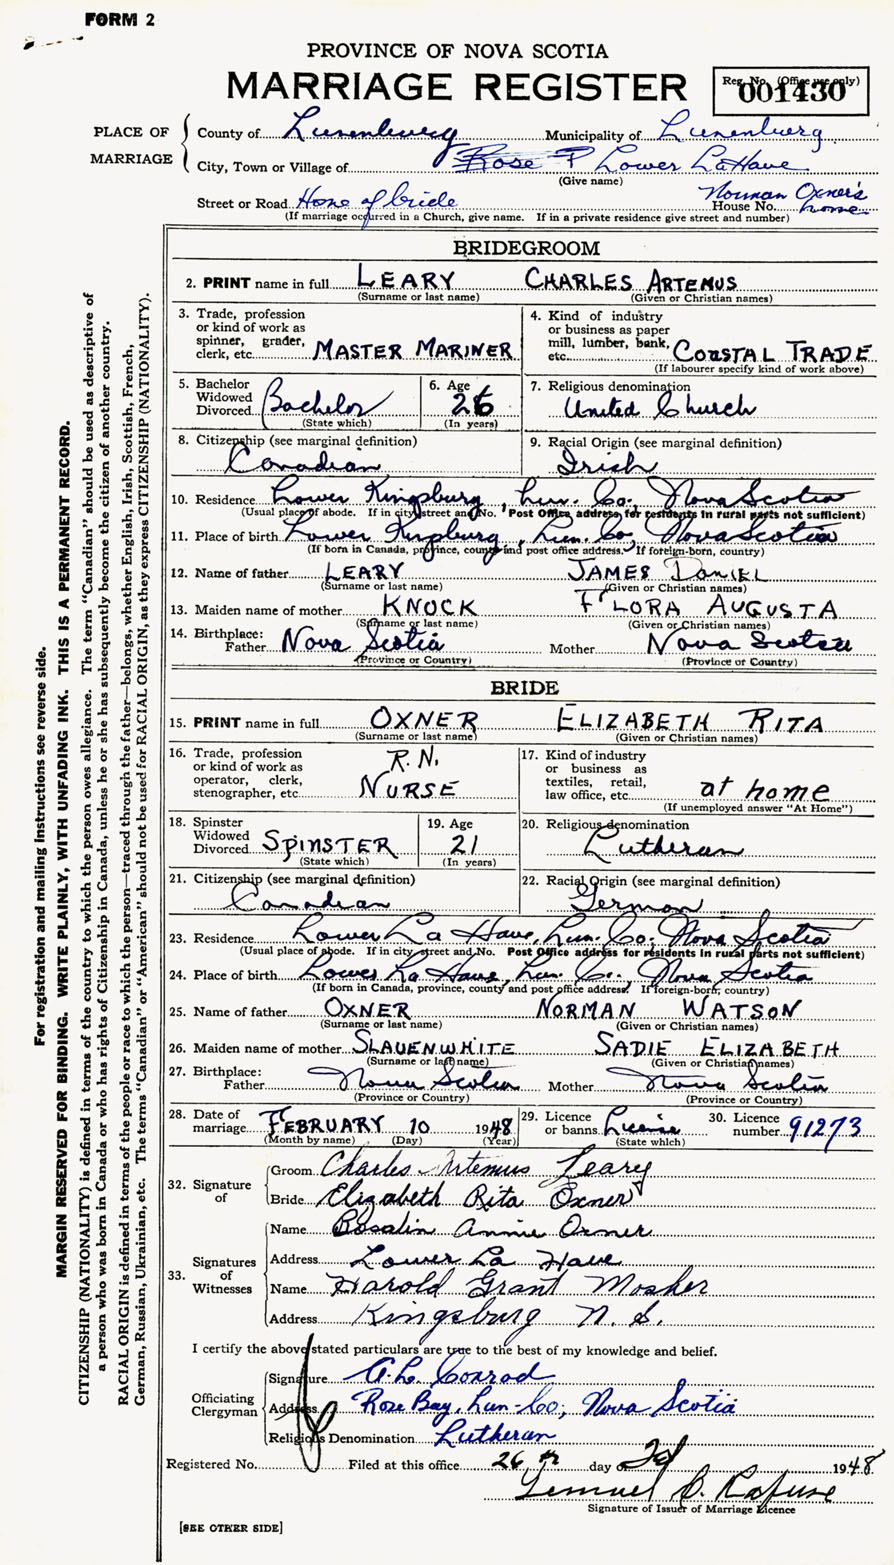 FORM 2
PROVINCE OF NOVA SCOTIA
MARRIAGE REGISTER
Reg. No. (Office use only)
001430
PLACE OF MARRIAGE
County of Lunenburg Municipality of Lunenburg
City, Town or Village of Rose P Lower LaHave
(Give name)
Street or Road Home of bride House No. Norman Oxner's home
(If marriage occurred in a Church, give name. If in a private residence give street and number)
BRIDEGROOM
2. PRINT name in full LEARY CHARLES ARTEMUS
(Surname or last name) (Given or Christian names)
3. Trade, profession or kind of work as spinner, grader, clerk, etc. MASTER MARINER
4. Kind of industry or business as paper mill, lumber, bank, etc. COASTAL TRADE
(If labourer specify kind of work above)
5. Bachelor Widowed Divorced Bachelor
(State which)
6. Age 26
(In years)
7. Religious denomination United Church
8. Citizenship (see marginal definition)
Canadian
9. Racial Origin (see marginal definition)
Irish
10. Residence Lower Kingsburg, Lun. Co., Nova Scotia
(Usual place of abode. If in city street and No. Post Office address for residents in rural parts not sufficient)
11. Place of birth Lower Kingsburg, Lun. Co., Nova Scotia
(If born in Canada, province, county and post office address. If foreign-born, country)
12. Name of father LEARY JAMES DANIEL
(Surname or last name) (Given or Christian names)
13. Maiden name of mother KNOCK FLORA AUGUSTA
(Surname or last name) (Given or Christian names)
14. Birthplace: Father Nova Scotia Mother Nova Scotia
(Province or Country) (Province or Country)
BRIDE
15. PRINT name in full OXNER ELIZABETH RITA
(Surname or last name) (Given or Christian names)
16. Trade, profession or kind of work as operator, clerk, stenographer, etc. R.N. NURSE
17. Kind of industry or business as textiles, retail, law office, etc. at home
(If unemployed answer "At Home")
18. Spinster Widowed Divorced SPINSTER
(State which)
19. Age 21
(In years)
20. Religious denomination
Lutheran
21. Citizenship (see marginal definition)
Canadian
22. Racial Origin (see marginal definition)
German
23. Residence Lower La Have, Lun. Co. Nova Scotia
(Usual place of abode. If in city street and No. Post Office address for residents in rural parts not sufficient)
24. Place of birth Lower La Have, Lun. Co., Nova Scotia
(If born in Canada, province, county and post office address. If foreign-born, country)
25. Name of father OXNER NORMAN WATSON
(Surname or last name) (Given or Christian names)
26. Maiden name of mother SLAUENWHITE SADIE ELIZABETH
(Surname or last name) (Given or Christian names)
27. Birthplace: Father Nova Scotia Mother Nova Scotia
(Province or Country) (Province or Country)
28. Date of marriage FEBRUARY 10 1948
(Month by name) (Day) (Year)
29. Licence or banns License
(State which)
30. Licence number 91273
32. Signature of
Groom Charles Artemus Leary
Bride Elizabeth Rita Oxner
33. Signatures of Witnesses
Name Rosalin Annie Oxner
Address Lower La Have
Name Harold Grant Mosher
Address Kingsburg N.S.
I certify the above stated particulars are true to the best of my knowledge and belief.
Officiating Clergyman
Signature A. L. Conrad
Address Rose Bay, Lun-Co; Nova Scotia
Religious Denomination Lutheran
Registered No. Filed at this office 26th day of Feb 1948
Lemuel C. Rafuse
Signature of Issuer of Marriage Licence
[SEE OTHER SIDE]
For registration and mailing instructions see reverse side.
MARGIN RESERVED FOR BINDING. WRITE PLAINLY, WITH UNFADING INK. THIS IS A PERMANENT RECORD.
CITIZENSHIP (NATIONALITY) is defined in terms of the country to which the person owes allegiance. The term "Canadian" should be used as descriptive of
a person who was born in Canada or who has rights of Citizenship in Canada, unless he or she has subsequently become the citizen of another country.
RACIAL ORIGIN is defined in terms of the people or race to which the person—traced through the father—belongs, whether English, Irish, Scottish, French,
German, Russian, Ukrainian, etc. The terms "Canadian" or "American" should not be used for RACIAL ORIGIN, as they express CITIZENSHIP (NATIONALITY).